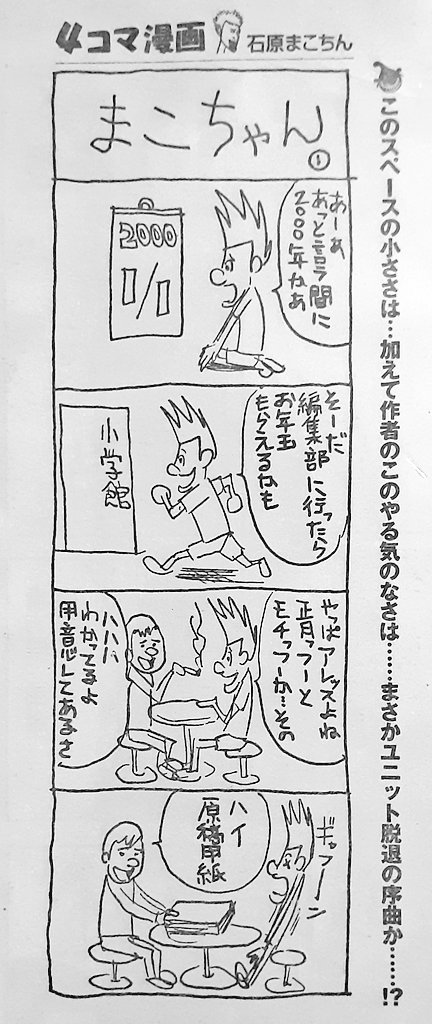 4コマ漫画
石原まこちん
このスペースの小ささは…加えて作者のこのやる気のなさは……まさかユニット脱退の序曲か……!?
まこちゃん
①
あーあ
あっと言う間に
2000年かぁ
2000
1/1
そーだ
編集部に行ったら
お年玉
もらえるかも
小学館
やっぱアレッスよね
正月っつーと
モチっつーか…その
ハハハ
わかってるよ
用意してあるさ
ハイ
原稿用紙
ギャフーン